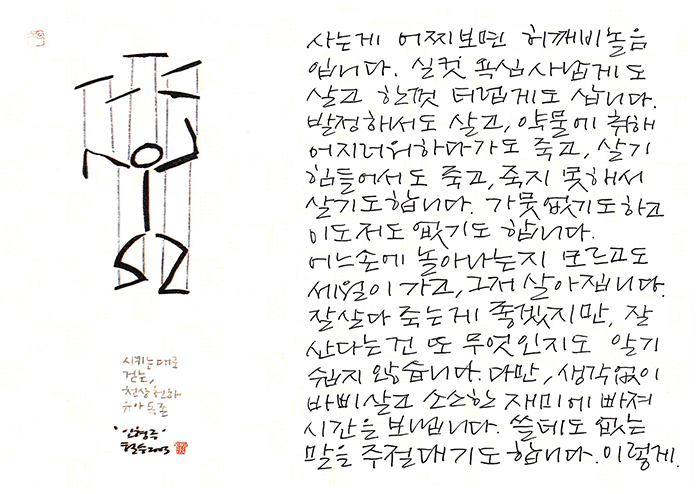 시키는대로
걷는,
천상천하
유아독존
사는게 어찌보면 허깨비놀음
입니다. 실컷 욕심사납게도
살고 한껏 더럽게도 삽니다.
발정해서도 살고, 약물에 취해
어지러워하다가도 죽고, 살기
힘들어서도 죽고, 죽지 못해서
살기도합니다. 가뭇없기도하고
이도저도 없기도 합니다.
어느손에 놀아나는지 모르고도
세월이 가고, 그저 살아집니다.
잘살다 죽는게 좋겠지만, 잘
산다는건 또 무엇인지도 알기
쉽지 않습니다. 다만, 생각없이
바삐살고 소소한 재미에 빠져
시간을 보냅니다. 쓸데도 없는
말을 주절대기도 합니다. 이렇게.